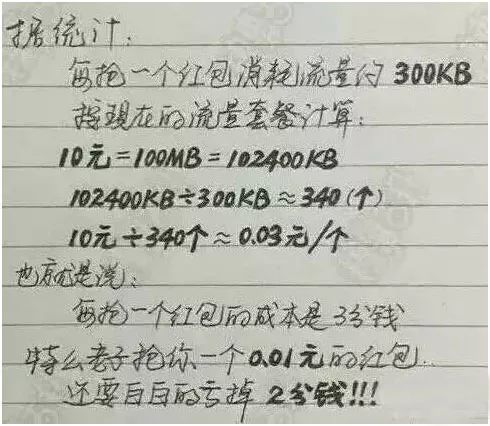 据统计:
每抢一个红包消耗流量约 300KB
按现在的流量套餐计算:
10元=100MB=102400KB
102400KB÷300KB≈340(个)
10元÷340个≈0.03元/个
也就是说:
每抢一个红包的成本是3分钱
特么老子抢你一个0.01元的红包..
还要白白的亏掉 2分钱!!!